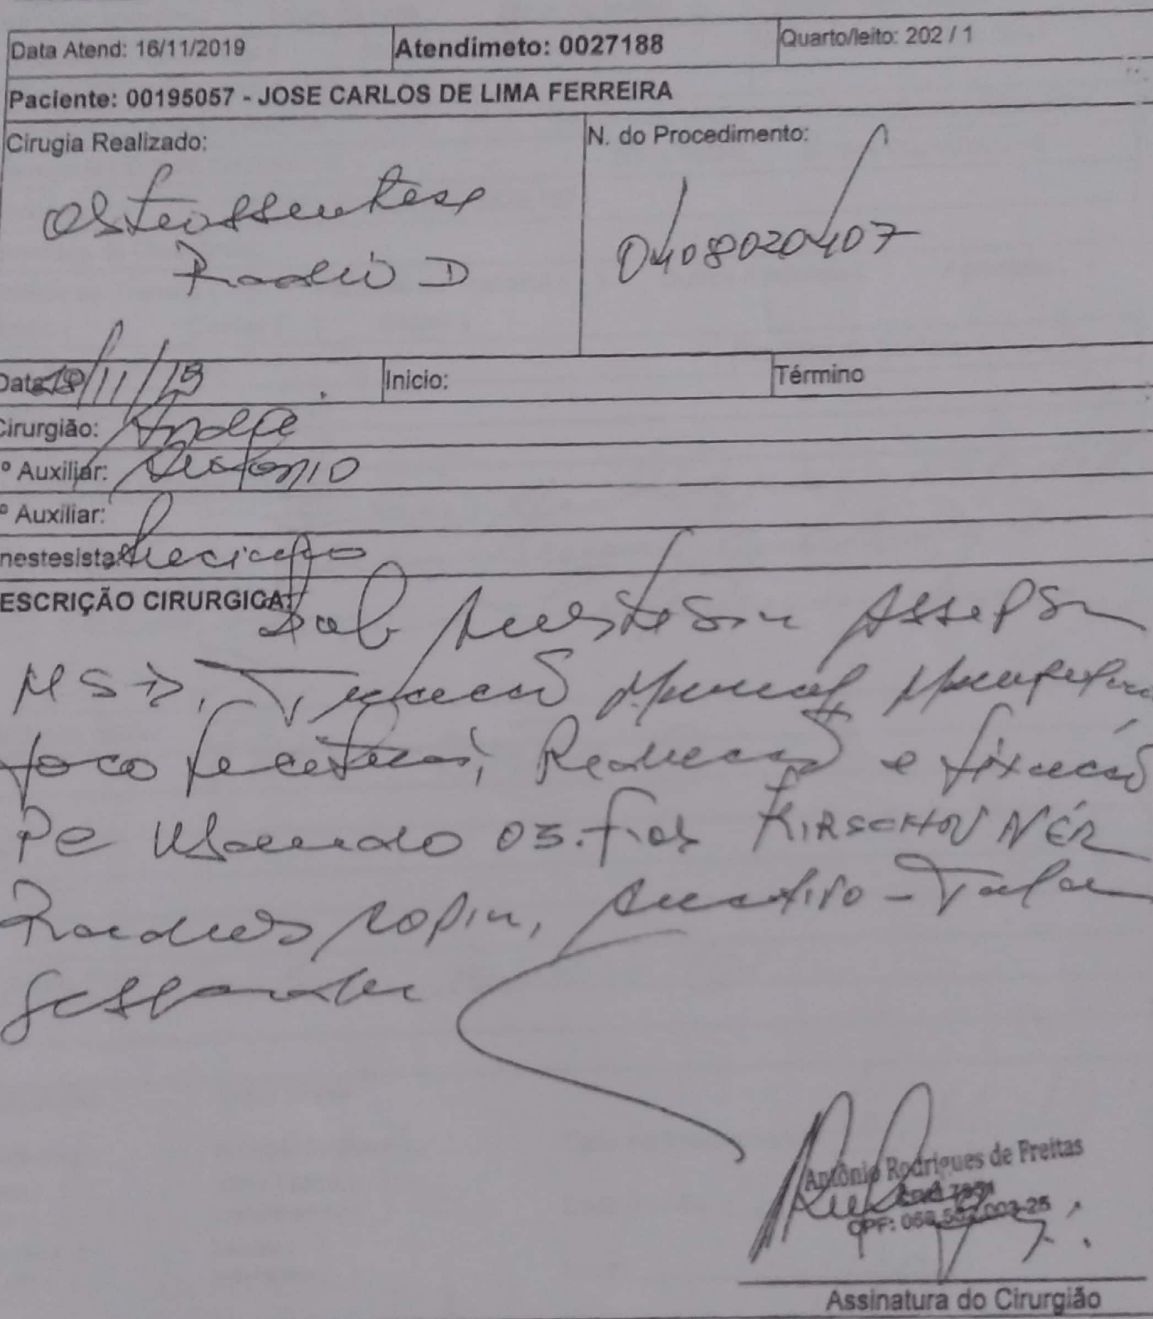 Data Atend: 16/11/2019 Atendimeto: 0027188 Quarto/leito: 202 / 1
Paciente: 00195057 - JOSE CARLOS DE LIMA FERREIRA
Cirugia Realizado: N. do Procedimento:
Osteossentese 0408020407
Radio D
Data 18/11/19 Inicio: Término
Cirurgião: Andre
º Auxiliar: Antonio
º Auxiliar:
nestesista:
ESCRIÇÃO CIRURGICA: Sob Anestesia Assepsia
MSD, Tração Manual
foco fratura, Redução e fixação
Pe usando 03 fios KIRSCHOVNER
Radius copia, curativo - Tala
gessada
Antônio Rodrigues de Freitas
CPF:
Assinatura do Cirurgião